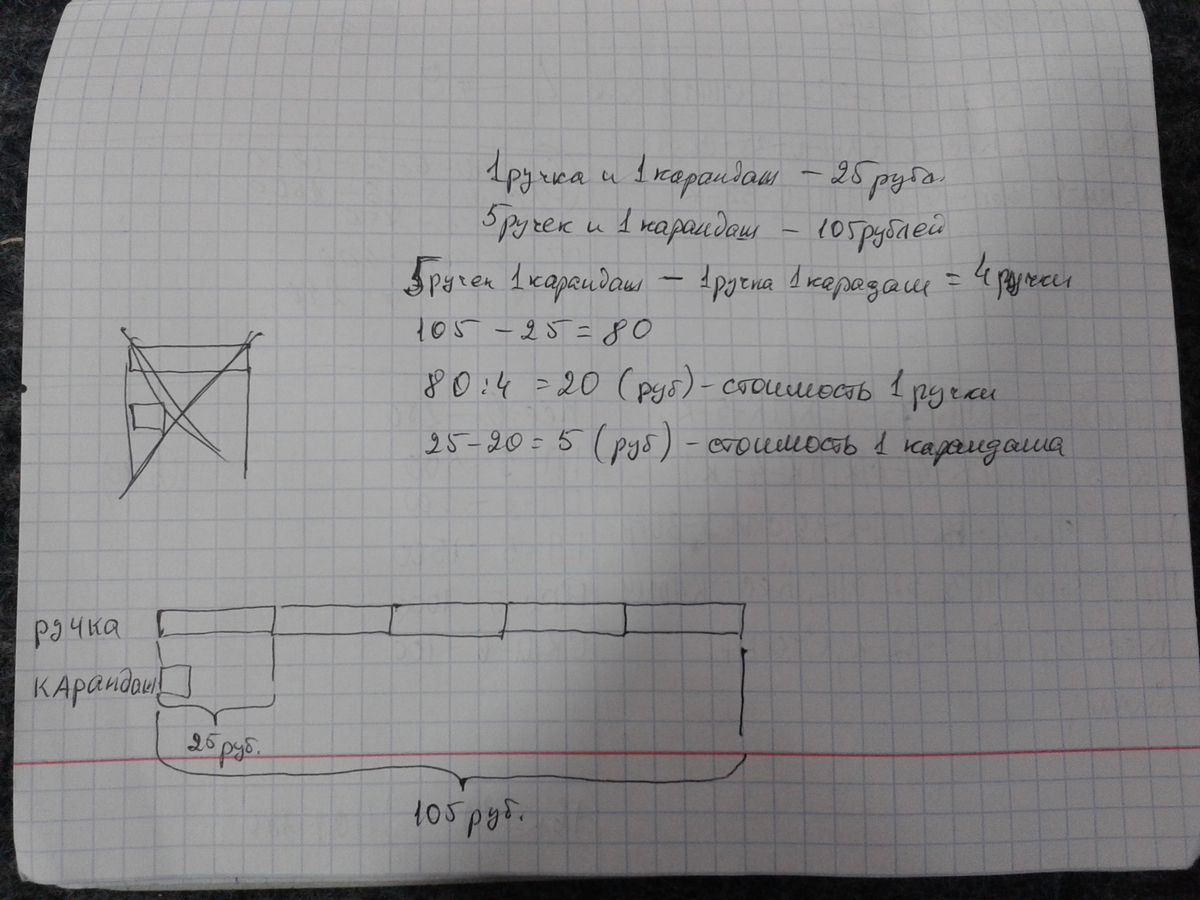 1 ручка и 1 карандаш - 25 рубл.
5 ручек и 1 карандаш - 105 рублей
5 ручек 1 карандаш - 1 ручка 1 карадаш = 4 ручки
105 - 25 = 80
80 : 4 = 20 (руб) - стоимость 1 ручки
25 - 20 = 5 (руб) - стоимость 1 карандаша
ручка
карандаш
25 руб.
105 руб.